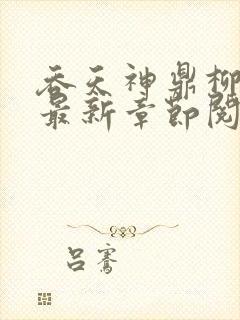 吞天神鼎柳
最新章节阅
吕骞